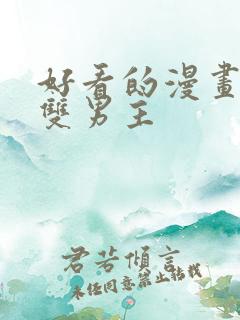 好看的漫畫
雙男主
君若傾言
未任同意禁止拈我